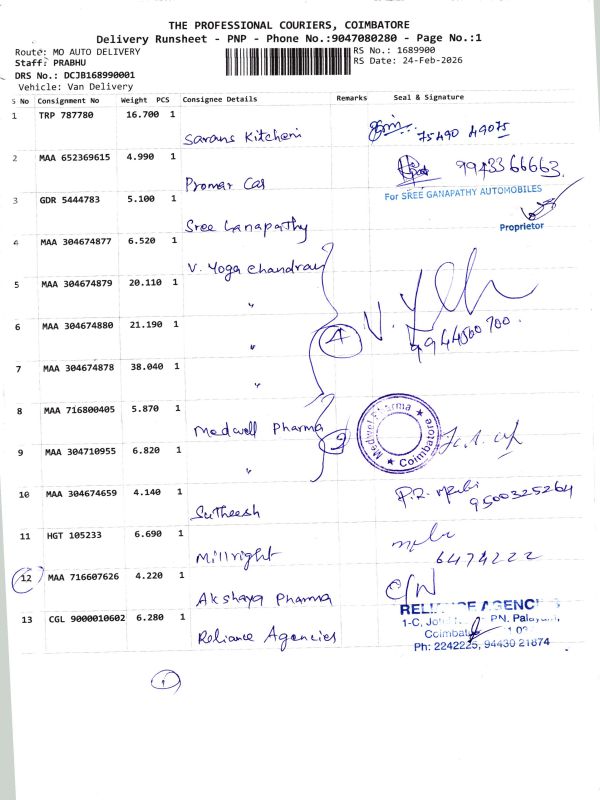 THE PROFESSIONAL COURIERS, COIMBATORE
Delivery Runsheet - PNP - Phone No.:9047080280 - Page No.:1
Route: MO AUTO DELIVERY
RS No.: 1689900
Staff: PRABHU
RS Date: 24-Feb-2026
DRS No.: DCJB168990001
Vehicle: Van Delivery
S No Consignment No Weight PCS Consignee Details Remarks Seal & Signature
1 TRP 787780 16.700 1
Sarans Kitchen 75490 49075
2 MAA 652369615 4.990 1
Promar Car 99433 66663.
3 GDR 5444783 5.100 1
For SREE GANAPATHY AUTOMOBILES
Proprietor
Sree Ganapathy
4 MAA 304674877 6.520 1
V. Yoga Chandran
5 MAA 304674879 20.110 1
"
6 MAA 304674880 21.190 1
" 4 9944500700.
7 MAA 304674878 38.040 1
"
8 MAA 716800405 5.870 1
Medwell Pharma 2
Medwell Pharma
★ Coimbatore ★
9 MAA 304710955 6.820 1
"
10 MAA 304674659 4.140 1
Sutheesh 9500325264
11 HGT 105233 6.690 1
Millright 6474222
12 MAA 716607626 4.220 1
Akshaya Pharma C/N
13 CGL 9000010602 6.280 1
Reliance Agencies
RELIANCE AGENC
1-C, PN. Palayam,
Coimbat
Ph: 2242225, 94430 21874
1